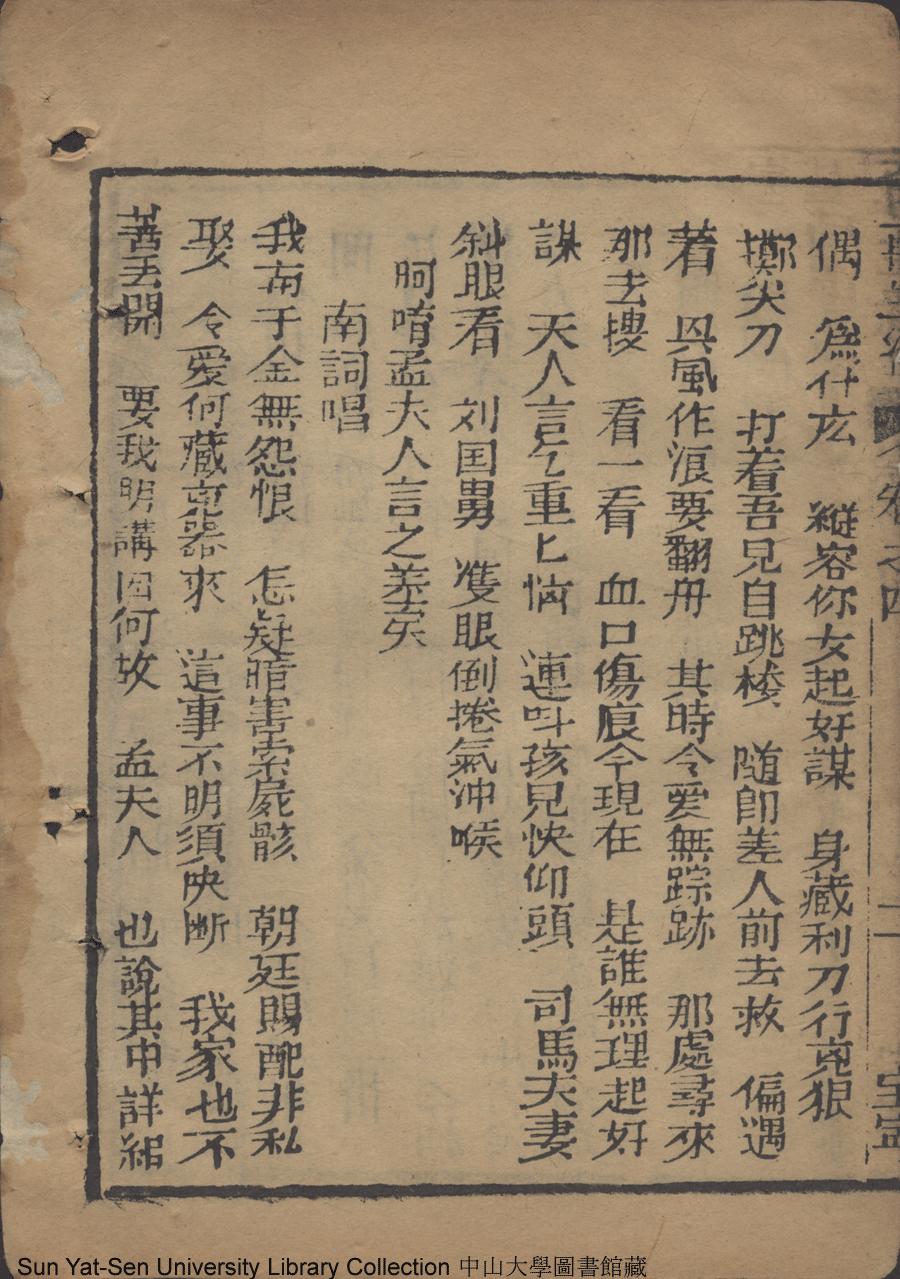 偶　為什庅　縱容你女起奸謀　身藏利刀行兇狠
擲尖刀　打着吾兒自跳楼　随即差人前去救　偏遇
着　興風作浪要翻舟　其時令愛無踪跡　那處尋來
那去摟　看一看　血口傷痕今現在　是誰無理起奸
謀　天人言乞重上惱　連呌孩兒快仰頭　司馬夫妻
斜眼看　刘囯舅　隻眼倒捲氣沖喉
呵唷孟夫人言之差矣
南詞唱
我南于金無怨恨　怎疑暗害索屍骸　朝廷賜配非私
娶　令愛何藏兇器來　這事不明須決断　我家也不
善丢開　要我明講因何故　孟夫人　也說其中詳細
卷之四
二
Sun Yat-Sen University Library Collection 中山大學圖書館藏